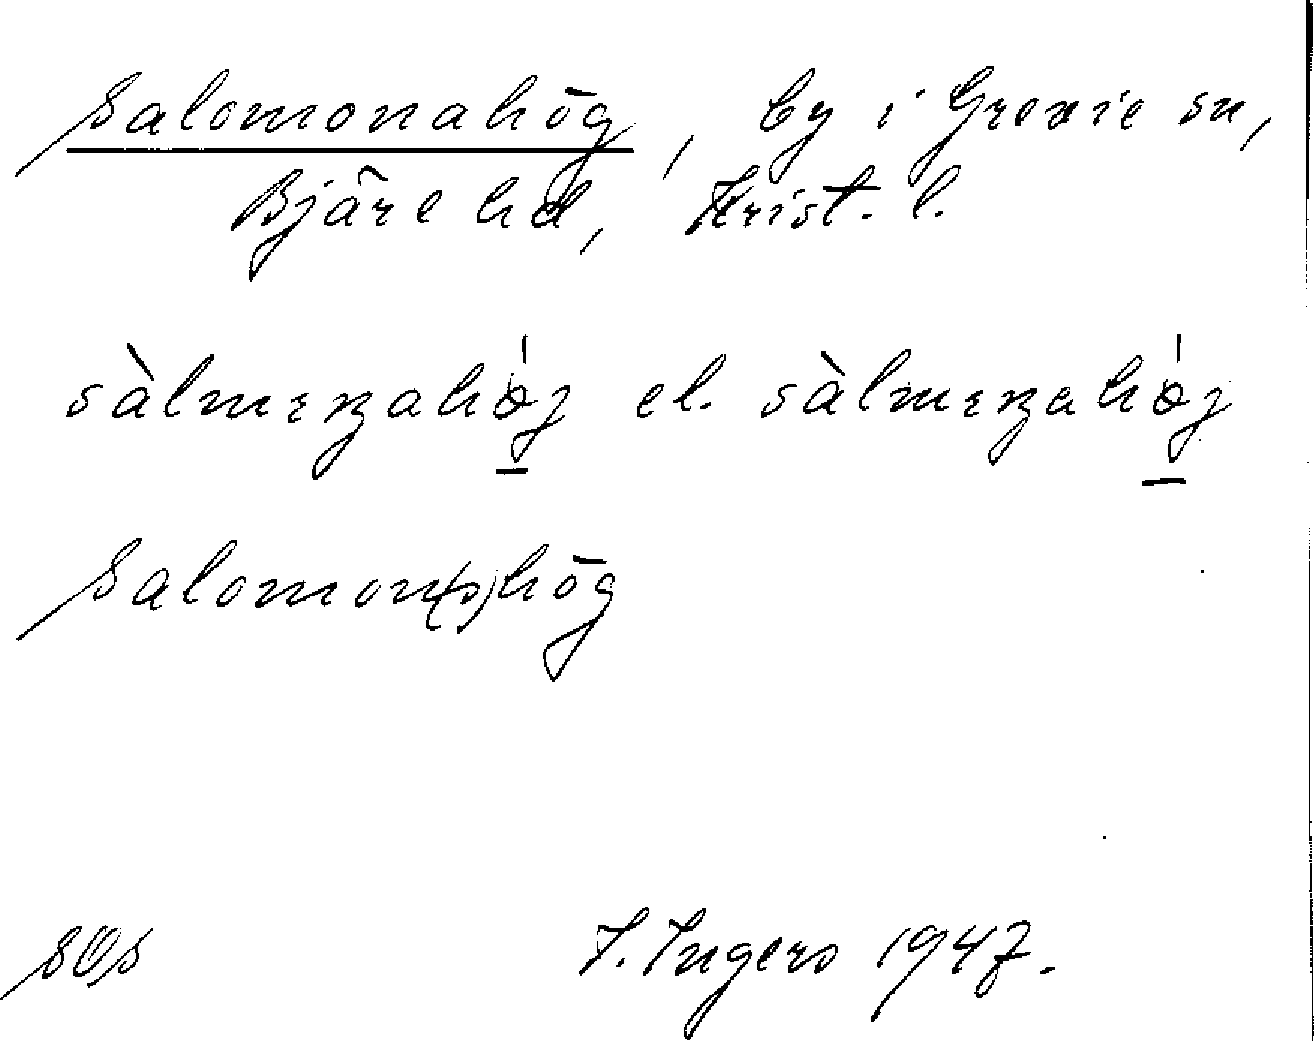 Salomonahög, by i Grevie sn,
Bjäre hd, Krist. l.
el.
Salomon(s)hög
SOS I. Ingers 1947.